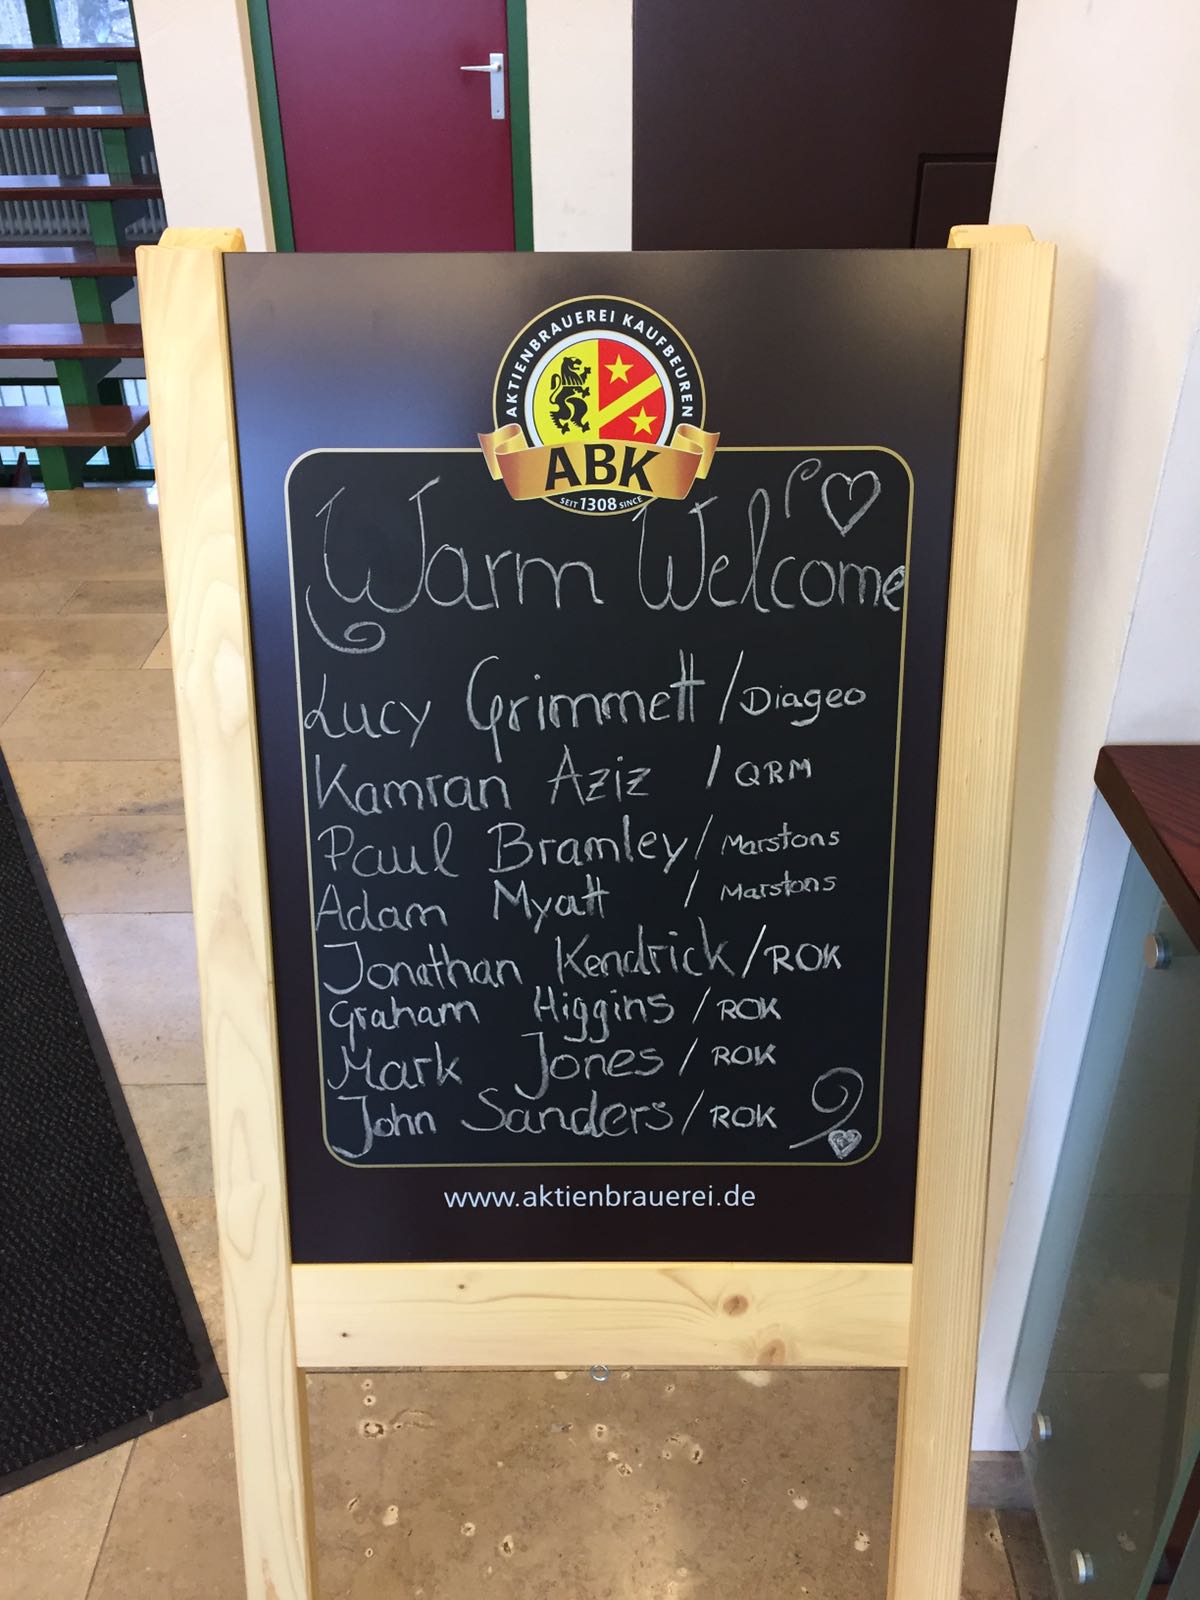 AKTIENBRAUEREI KAUFBEUREN
ABK
SEIT 1308 SINCE
Warm Welcome
Lucy Grimmett / Diageo
Kamran Aziz / QRM
Paul Bramley / Marstons
Adam Myatt / Marstons
Jonathan Kendrick / ROK
Graham Higgins / ROK
Mark Jones / ROK
John Sanders / ROK
www.aktienbrauerei.de